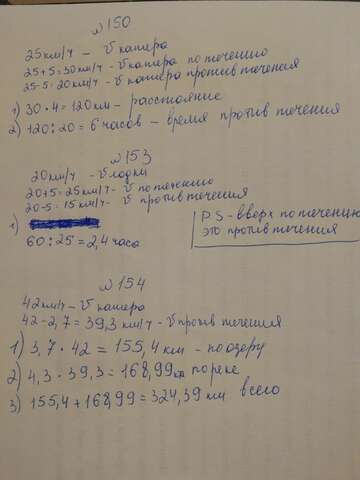 №150
25км/ч - V катера
25+5=30км/ч - V катера по течению
25-5=20км/ч - V катера против течения
1) 30·4=120км - расстояние
2) 120:20=6часов - время против течения
№153
20км/ч - V лодки
20+5=25км/ч - V по течению
20-5=15км/ч - V против течения
1)
60:25=2,4 часа
PS - вверх по течению
это против течения
№154
42км/ч - V катера
42-2,7=39,3км/ч - V против течения
1) 3,7·42=155,4км - по озеру
2) 4,3·39,3=168,99км по реке
3) 155,4+168,99=324,39км всего